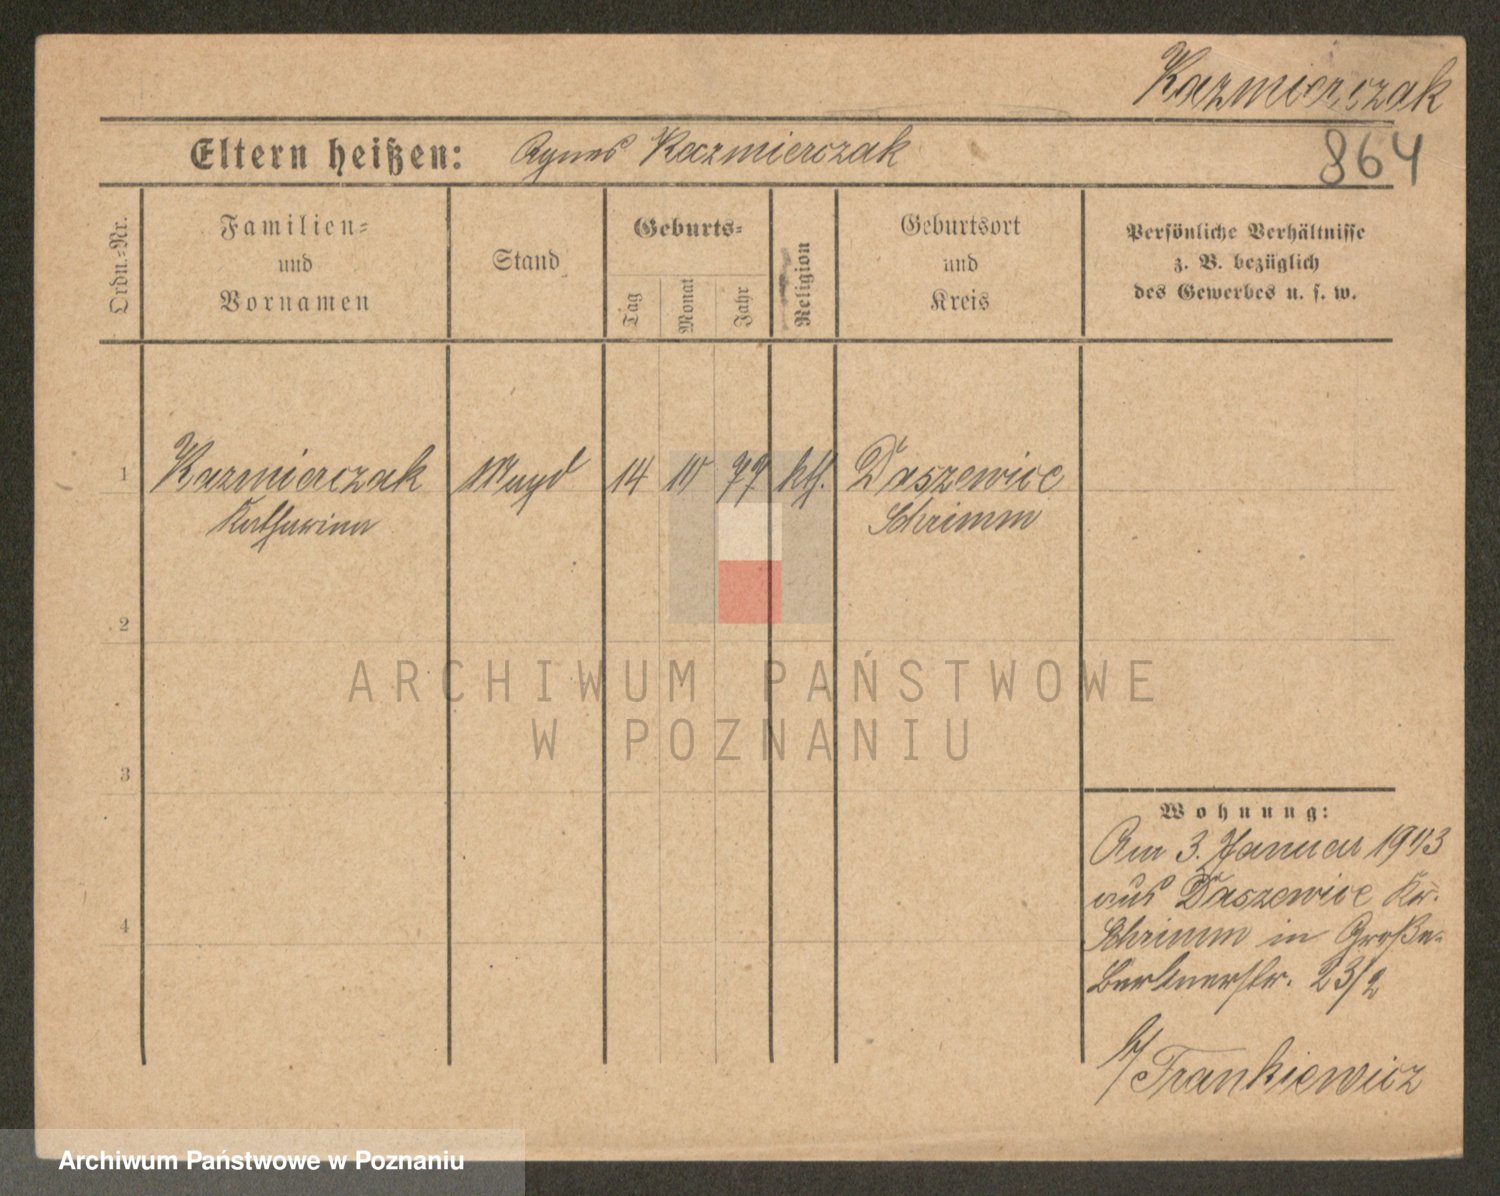 Kazmierczak
Eltern heißen: Agnes Kazmierczak
864
Ordn.=Nr.
Familien=
und
Vornamen
Stand
Geburts=
Tag
Monat
Jahr
Religion
Geburtsort
und
Kreis
Persönliche Verhältnisse
z. B. bezüglich
des Gewerbes u. s. w.
1 Kazmierczak Magd 14 10 77 kth. Daszewice
Katharina Schrimm
2
3
4
ARCHIWUM PAŃSTWOWE
W POZNANIU
Wohnung:
Am 3. Januar 1903
aus Daszewice Kr.
Schrimm in Große-
Berlinerstr. 23/2
b/ Frankiewicz
Archiwum Państwowe w Poznaniu